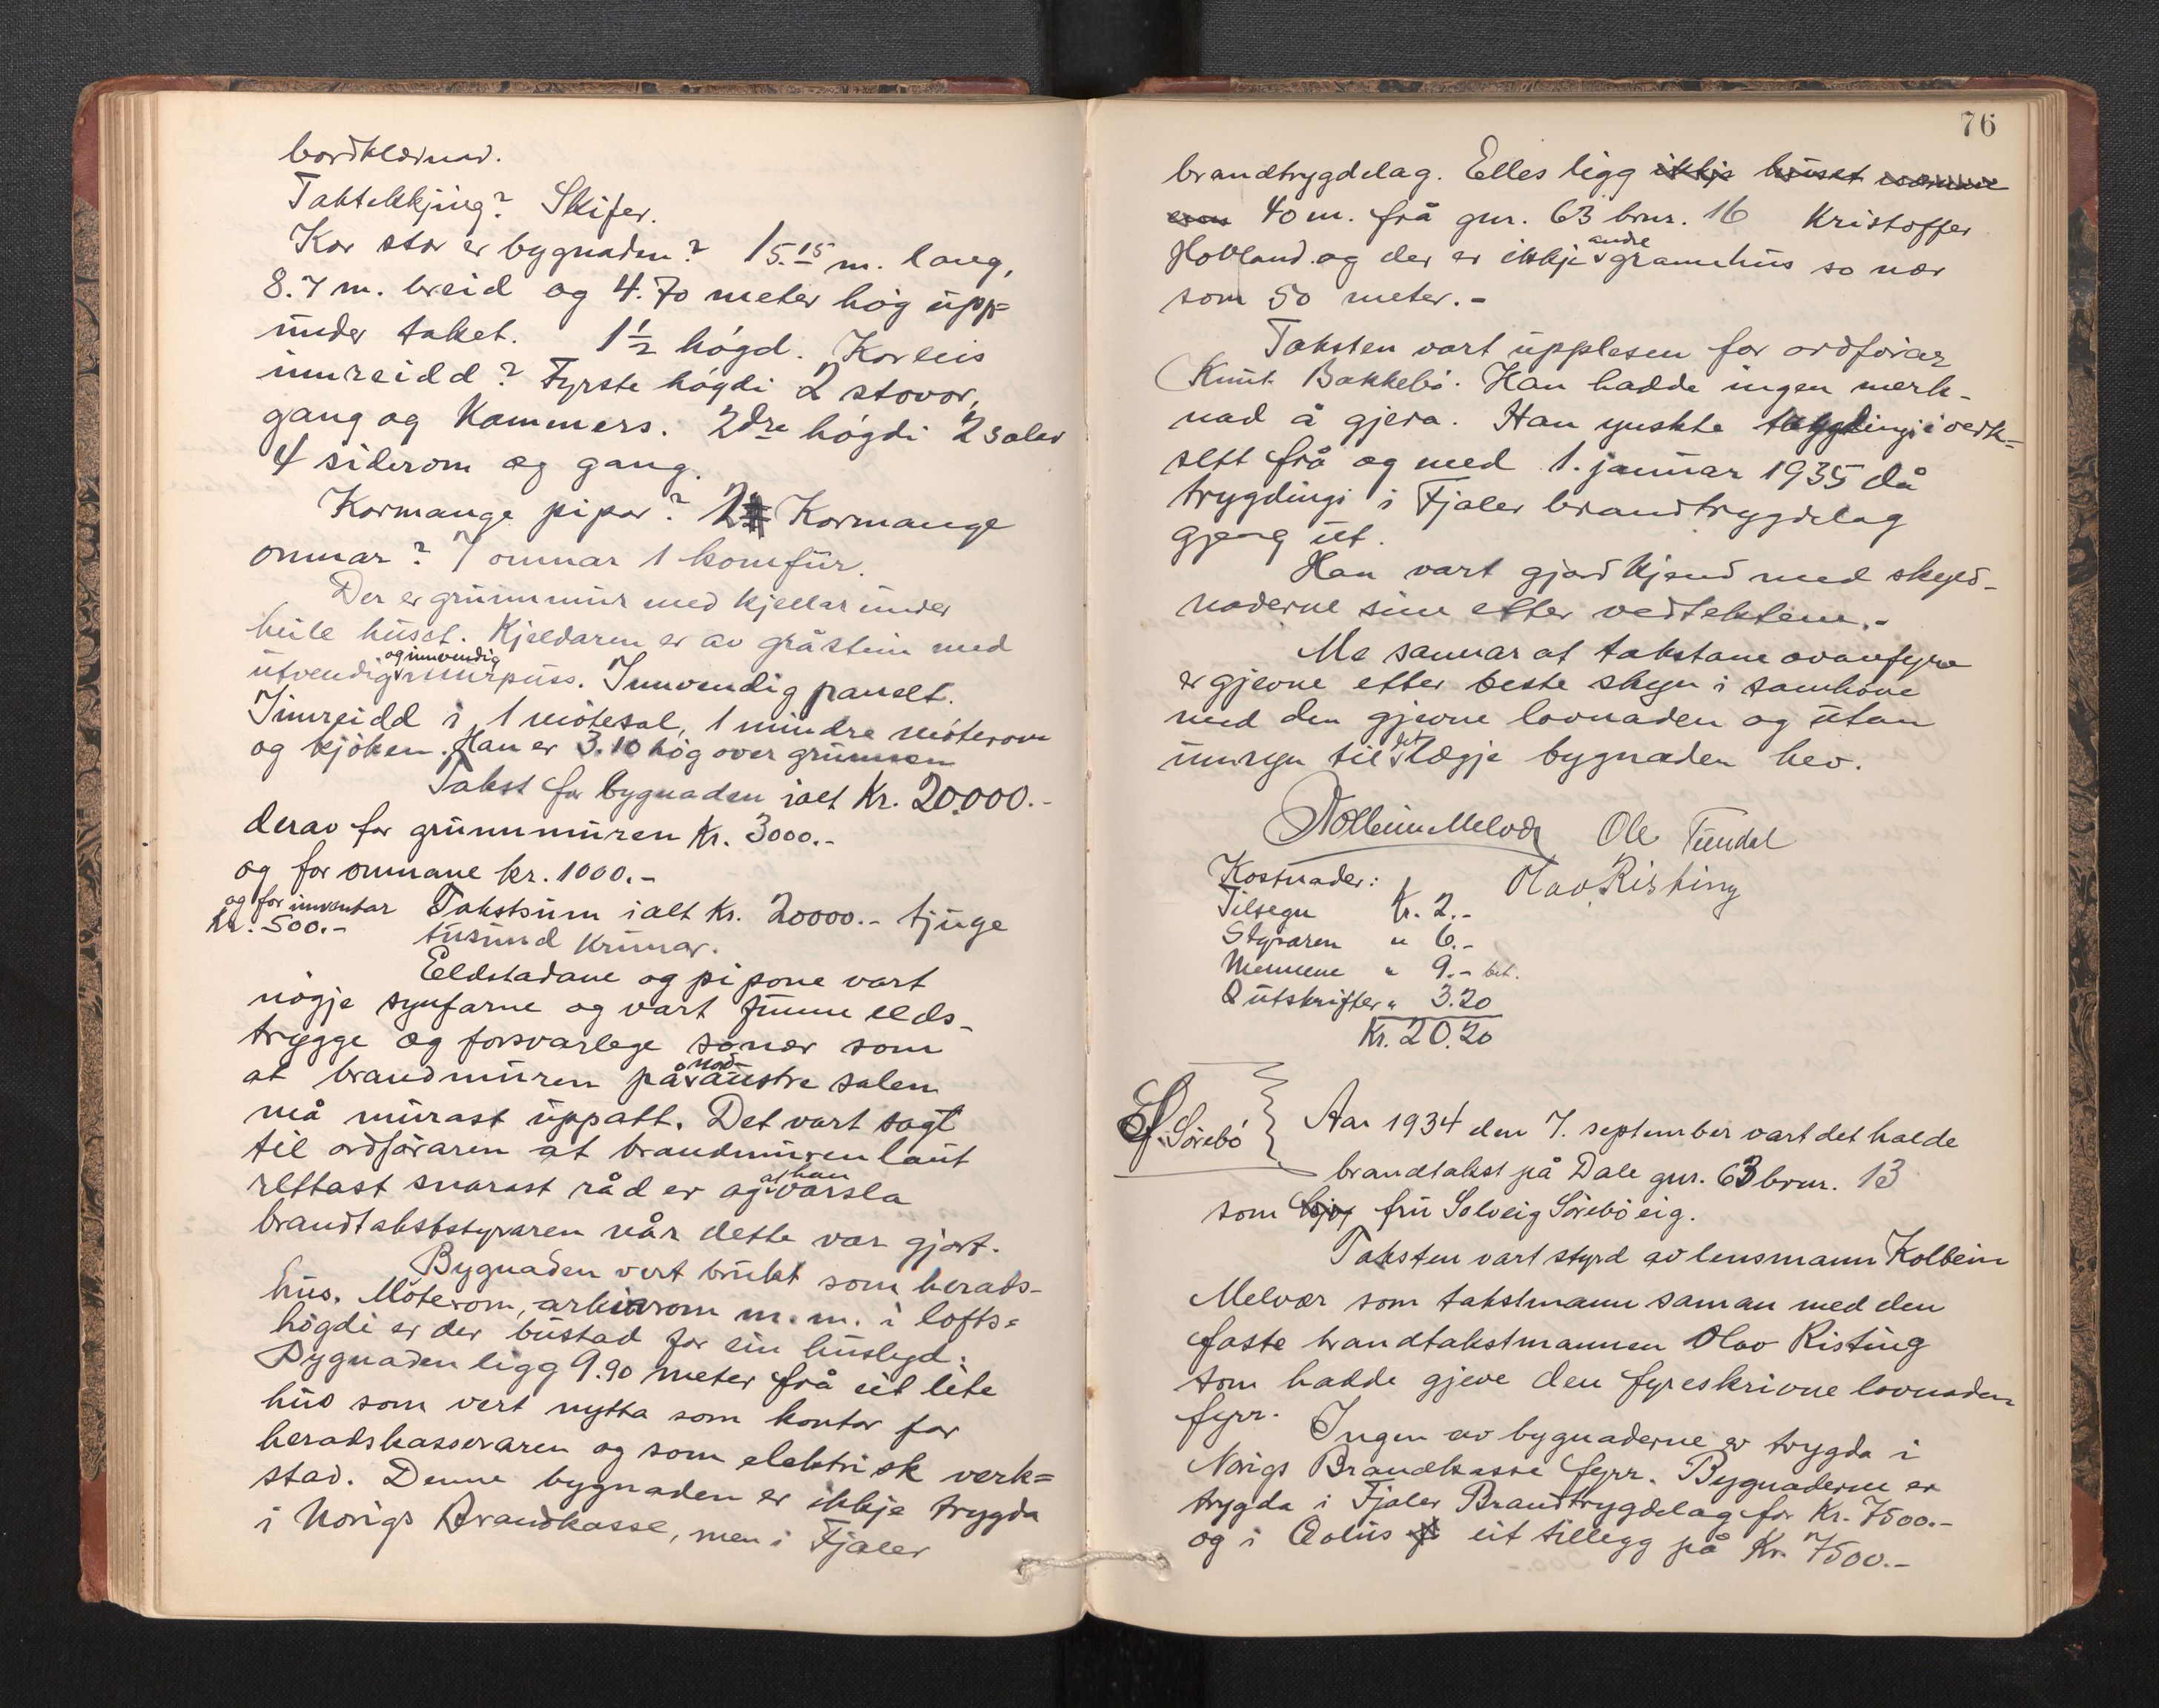 bordklædnad.
Taktekkjing? Skifer.
Kor stor er bygnaden? 15.15 m. lang,
8.7 m. breid og 4.70 meter høg upp-
under taket. 1½ høgd. Korleis
innreidd? Fyrste høgdi 2 stovor,
gang og Kammers. 2dre høgdi 2 salar
4 siderom og gang.
Kormange pipor? 2 Kormange
omnar? 7 omnar 1 komfür.
Der er grunnmur med kjellar under
heile huset. Kjeldaren er av gråstein med
og innvendig
utvendig murpuss. Innvendig panelt.
Innreidd i 1 møtesal, 1 mindre møterom
og kjøken. Han er 3.10 høg over grunnen
Takst for bygnaden ialt Kr. 20.000.-
derav for grunnmuren Kr. 3000.-
og for omnane kr. 1000.-
og for inventar Takstsum ialt Kr. 20000.- tjuge
kr. 500.- tusund krunar.
Eeldstadane og pipone vart
nøgje synfarne og vart funne elds-
trygge og forsvarlege sonær som
nord-
at brandmuren på austre salen
må murast uppatt. Det vart sagt
til ordføraren at brandmuren laut
at han
rettast snarast råd er og varsla
brandtakststyraren når dette var gjort.
Bygnaden vert brukt som herads-
hus. Møterom, arkivrom m.m. i lofts-
høgdi er der bustad for ein huslyd.
Bygnaden ligg 9.90 meter frå eit lite
hus som vert nytta som kontor for
heradskasseraren og som elektrisk verk-
stad. Denne bygnaden er ikkje trygda
i Norigs Brandkasse, men i Fjaler
76
brandtrygdelag. Elles ligg ikkje huset
40 m. frå gnr. 63 bnr. 16 Kristoffer
andre
Hovland og der er ikkje grannehus so nær
som 50 meter.-
Taksten vart upplesen for ordførar
Knut Bakkebø. Han hadde ingen merk-
nad å gjera. Han ynskte trygdingi iverk-
sett frå og med 1. januar 1935 då
trygdingi i Fjaler brandtrygdelag
gjeng ut.
Han vart gjord kjend med skyld-
naderne sine etter vedtektene.-
Me sannar at takstane ovanfyre
er gjevne etter beste skyn i samhøve
med den gjevne lovnaden og utan
det
umsyn til lægje bygnaden hev.
Kolbein Melvær Ole Tundal
Olav Risting
Kostnader:
Tilsegn Kr. 2.-
Styraren " 6.-
Mennene " 9.- bet.
2 utskrifter " 3.20
Kr. 20.20
Sørebø
Aar 1934 den 7. september vart det halde
brandtakst på Dale gnr. 63 bnr. 13
som fru Solveig Sørebø eig.
Taksten vart styrd av lensmann Kolbein
Melvær som takstmann saman med den
faste brandtakstmannen Olav Risting
som hadde gjeve den fyreskrivne lovnaden
fyrr. Ingen av bygnaderne er trygda i
Norigs Brandkasse fyrr. Bygnaderne er
trygda i Fjaler Brandtrygdelag for Kr. 7500.-
og i Æolus eit tillegg på Kr. 7500.-